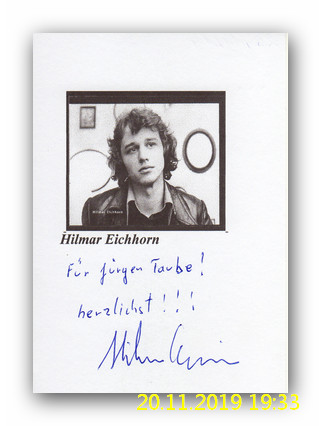 HILMAR EICHHORN
Hilmar Eichhorn
Für Jürgen Taube!
herzlichst!!!
Hilmar Eichhorn
20.11.2019 19:33